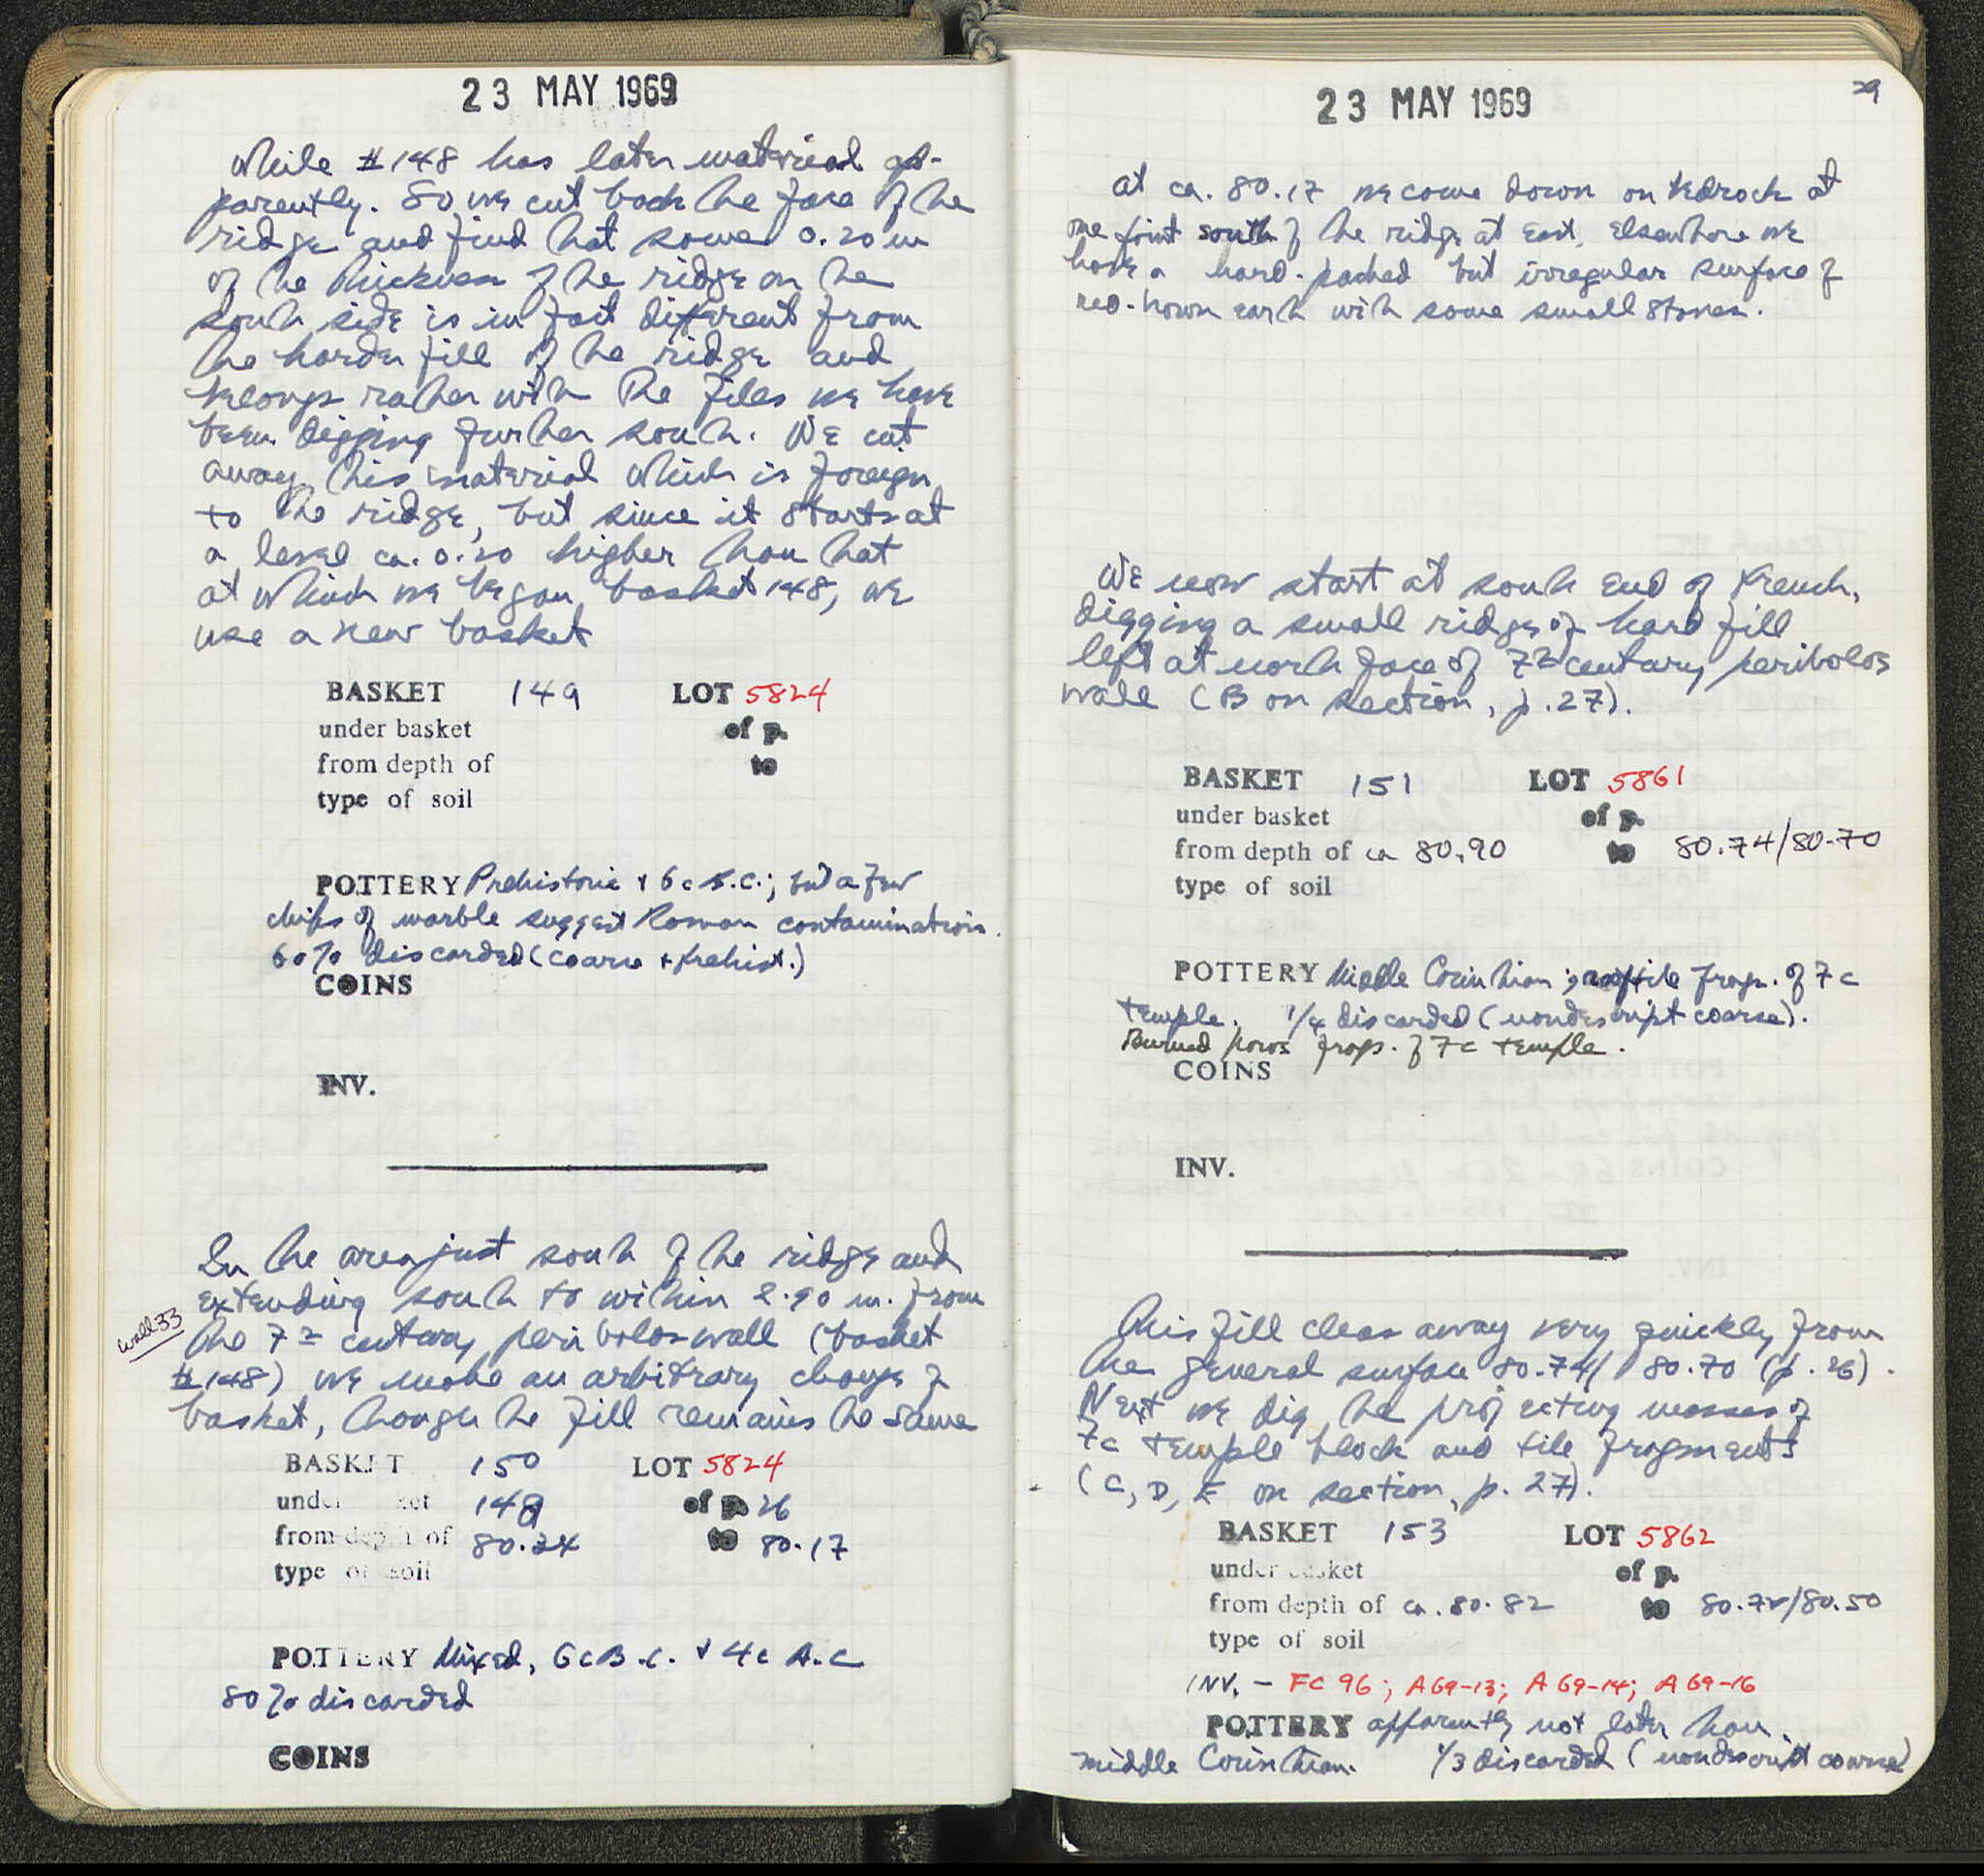 23 MAY 1969
While #148 has later material ap-
parently. So we cut back the face of the
ridge and find that some 0.20 m
of the thickness of the ridge on the
south side is in fact different from
the harder fill of the ridge and
belongs rather with the files we have
been digging further south. We cut
away this material which is foreign
to the ridge, but since it starts at
a level ca. 0.20 higher than that
at which we began basket 148, we
use a new basket
BASKET 149 LOT 5824
under basket of p.
from depth of to
type of soil
POTTERY Prehistoric + 6c B.C.; but a few
chips of marble suggest Roman contamination.
60% discarded (coarse + prehist.)
COINS
INV.
In the area just south of the ridge and
extending south to within 2.90 m. from
wall 33
the 7th century peribolos wall (basket
#148) we make an arbitrary change of
basket, though the fill remains the same
BASKET 150 LOT 5824
under basket 149 of p. 26
from depth of 80.24 to 80.17
type of soil
POTTERY Mixed, 6c B.C. + 4c A.C
80% discarded
COINS
23 MAY 1969
29
at ca. 80.17 we come down on bedrock at
one point south of the ridge at east. Elsewhere we
have a hard-packed but irregular surface of
red-brown earth with some small stones.
We now start at south end of trench,
digging a small ridge of hard fill
left at north face of 7th century peribolos
wall (B on section, p. 27).
BASKET 151 LOT 5861
under basket of p.
from depth of ca 80.90 to 80.74/80.70
type of soil
POTTERY Middle Corinthian; rooftile frags. of 7c
temple. 1/4 discarded (nondescript coarse).
Burned poros frags. of 7c temple.
COINS
INV.
This fill clears away very quickly from
the general surface 80.74/80.70 (p. 26).
Next we dig the projecting masses of
7c temple block and tile fragments
(C, D, E on section, p. 27).
BASKET 153 LOT 5862
under basket of p.
from depth of ca. 80.82 to 80.72/80.50
type of soil
INV. - FC 96; A69-13; A 69-14; A 69-16
POTTERY apparently not later than
middle Corinthian. 1/3 discarded (nondescript coarse)